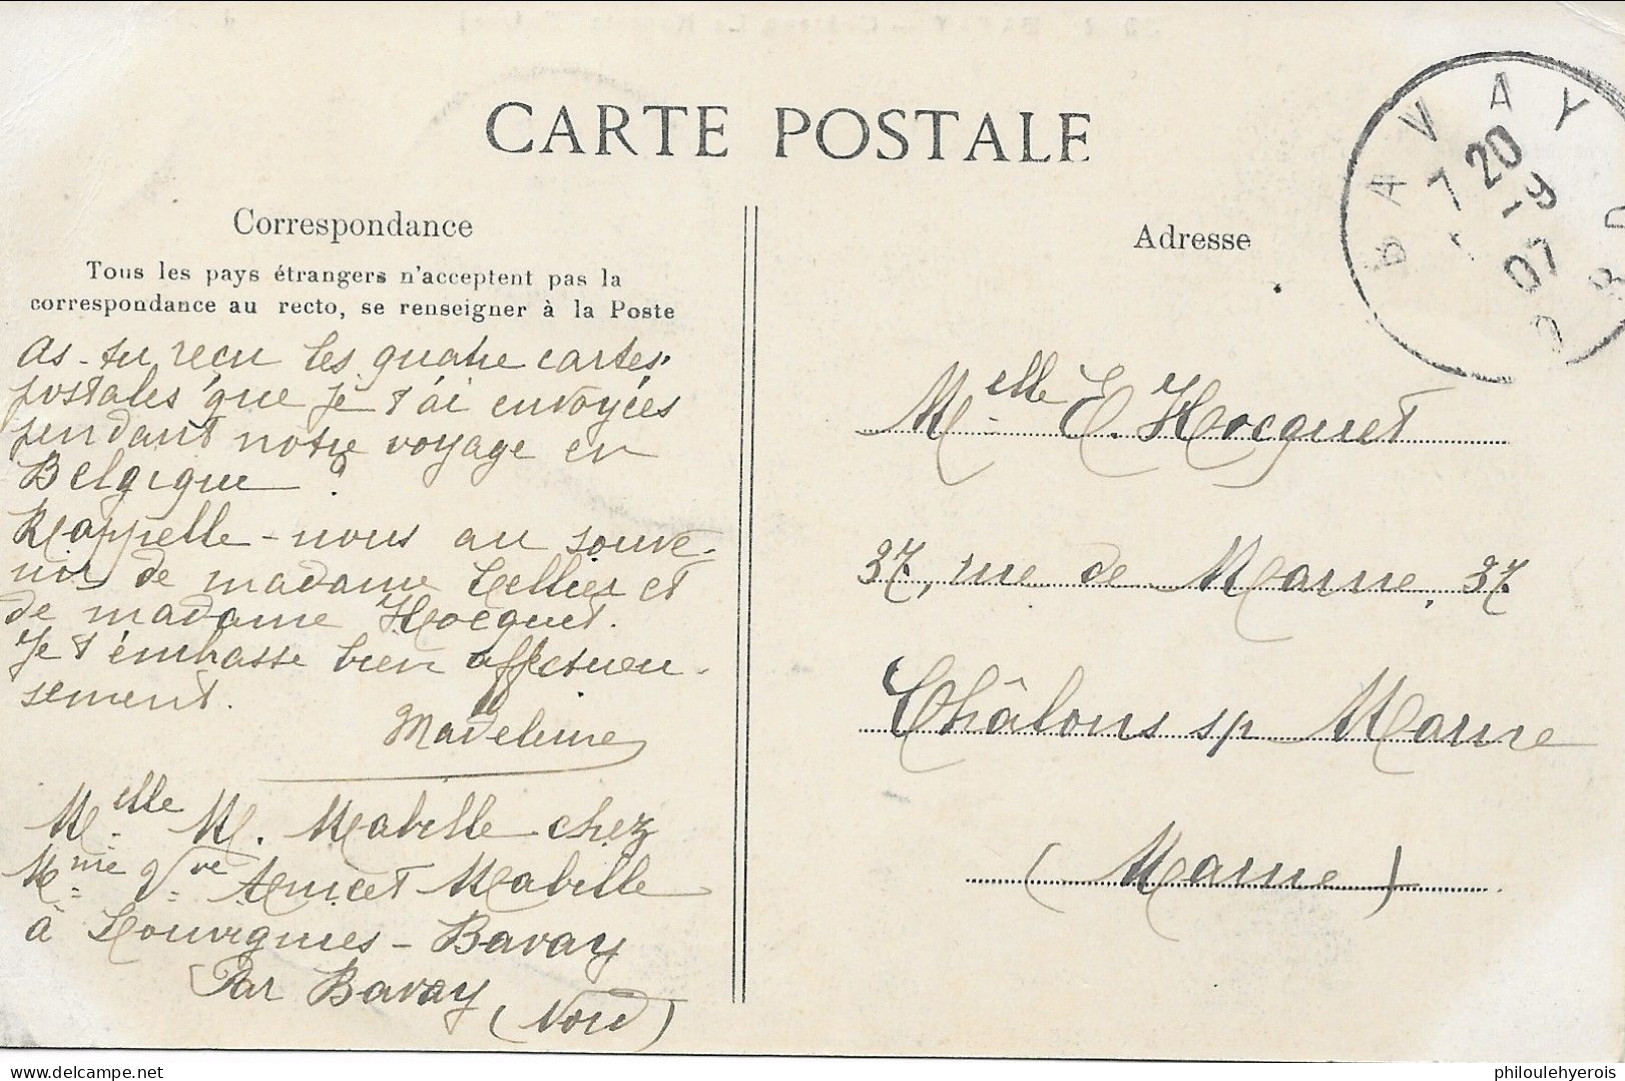 CARTE POSTALE
Correspondance
Tous les pays étrangers n'acceptent pas la
correspondance au recto, se renseigner à la Poste
As-tu reçu les quatre cartes
postales que je t'ai envoyées
pendant notre voyage en
Belgique ?
Rappelle-nous au souve-
nir de madame Tellier et
de madame Hocquet.
Je t'embrasse bien affectueu-
sement.
Madeleine
Melle M. Mabille chez
Mme Vve Anicet Mabille
à Louvignies-Bavay
Par Bavay
(Nord)
Adresse
BAVAY
7 20
-9
07
NORD
Melle E. Hocquet
37, rue de Marne, 37
Châlons s/ Marne
(Marne)
delcampe.net
philoulehyerois